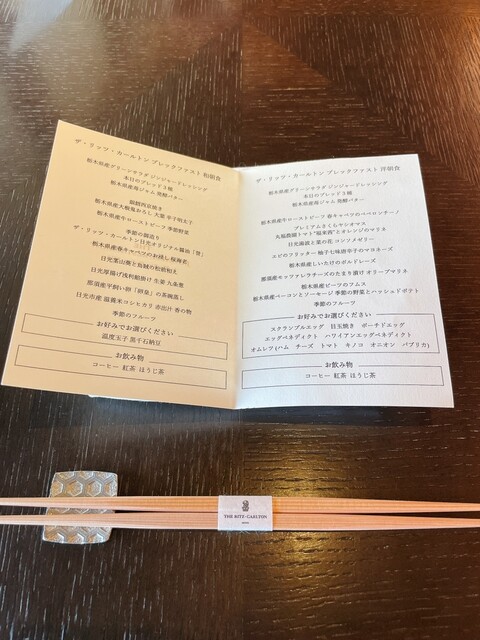 ザ・リッツ・カールトン ブレックファスト 和朝食
栃木県産グリーンサラダ ジンジャードレッシング
本日のブレッド3種
栃木県産苺ジャム 発酵バター
銀鱈西京焼き
栃木県産大根鬼おろし 大葉 辛子明太子
栃木県産牛ローストビーフ 季節野菜
季節の御造り
ザ・リッツ・カールトン日光オリジナル醤油「誉」
栃木県産春キャベツのお浸し 桜海老
日光厚揚げ浅利餡掛け 生姜 九条葱
那須産平飼い卵「卵皇」の茶碗蒸し
日光市産 温泉米コシヒカリ 赤出汁 香の物
季節のフルーツ
お好みでお選びください
温度玉子 黒千石納豆
お飲み物
コーヒー 紅茶 ほうじ茶
ザ・リッツ・カールトン ブレックファスト 洋朝食
栃木県産グリーンサラダ ジンジャードレッシング
本日のブレッド3種
栃木県産苺ジャム 発酵バター
栃木県産牛ローストビーフ 春キャベツのペペロンチーノ
プレミアムさくらヤシオマス
丸福農園トマト"稲来我"とオレンジのマリネ
日光湯波と菜の花 コンソメゼリー
エビのフリッター 柚子七味唐辛子のマヨネーズ
栃木県産しいたけのボルドレーズ
那須産モッツァレラチーズのたまり漬け オリーブマリネ
栃木県産ビーツのフムス
栃木県産ベーコンとソーセージ 季節の野菜とハッシュドポテト
季節のフルーツ
お好みでお選びください
スクランブルエッグ 目玉焼き ポーチドエッグ
エッグベネディクト ハワイアンエッグベネディクト
オムレツ (ハム チーズ トマト キノコ オニオン パプリカ)
お飲み物
コーヒー 紅茶 ほうじ茶
THE RITZ-CARLTON